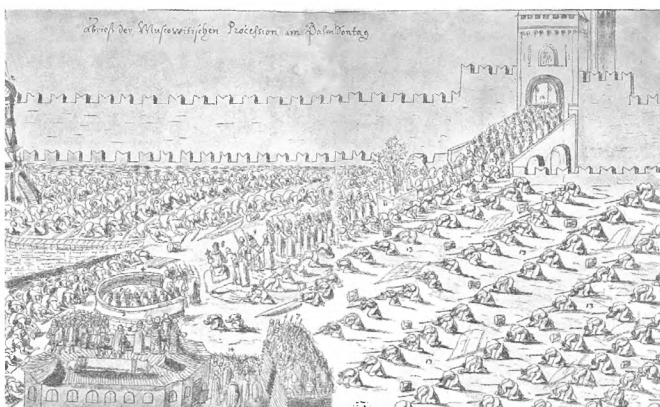 Abrieß der Muscowitischen Procession am PalmSontag
13
13
13
17